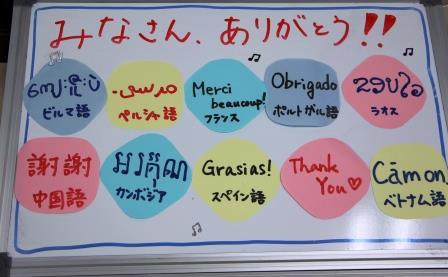 みなさん、ありがとう!!
ビルマ語
مرسی
ペルシャ語
Merci
beaucoup!
フランス
Obrigado
ポルトガル語
ຂອບໃຈ
ラオス
謝謝
中国語
អរគុណ
カンボジア
Grasias!
スペイン語
Thank
You♡
Cãmơn
ベトナム語